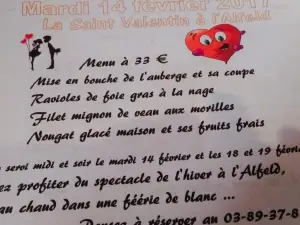 Mardi 14 février 2017
La Saint Valentin à l'Alfeld
Menu à 33 €
Mise en bouche de l'auberge et sa coupe
Ravioles de foie gras à la nage
Filet mignon de veau aux morilles
Nougat glacé maison et ses fruits frais
servi midi et soir le mardi 14 février et les 18 et 19 février
profiter du spectacle de l'hiver à l'Alfeld,
au chaud dans une féérie de blanc ...
à réserver au 03-89-37-8